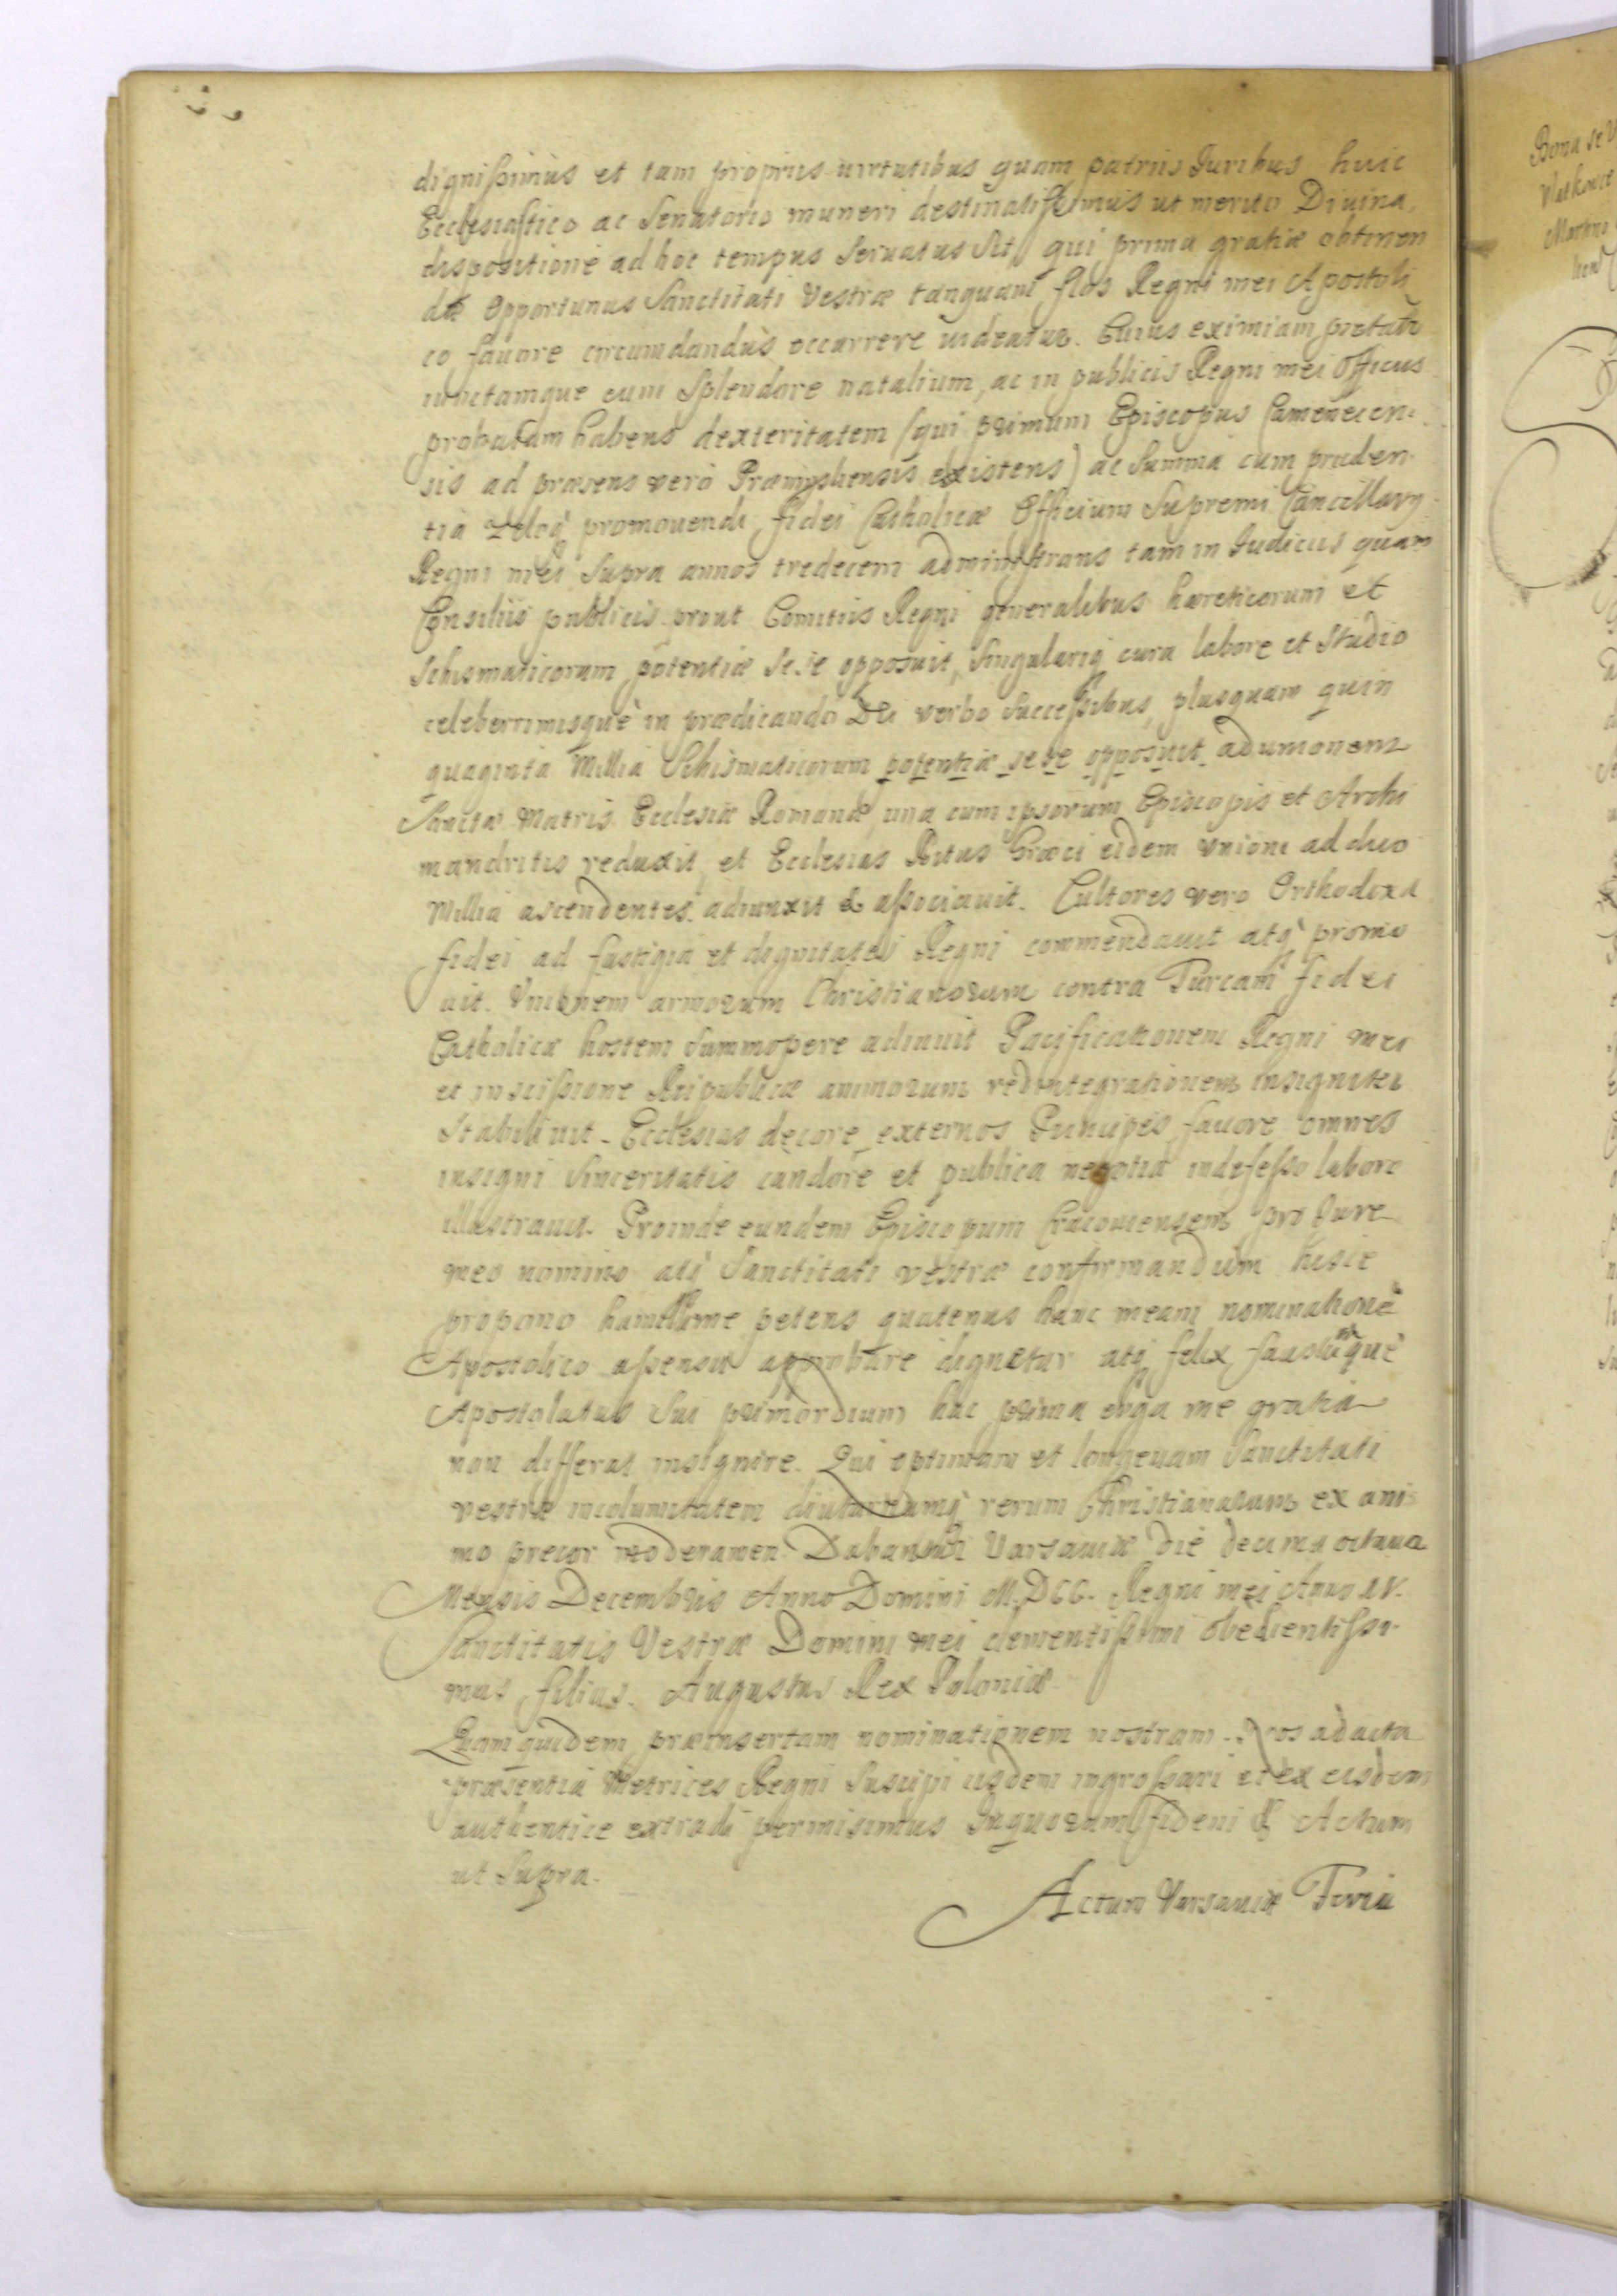 dignissimus et tam propriis virtutibus quam patriis Iuribus huic
Ecclesiastico ac Senatorio muneri destinatissimus ut merito Divina
dispositione ad hoc tempus servatus sit, qui prima gratiæ obtinen
dæ opportunus Sanctitati Vestræ tanquam flos Regni mei Apostoli
co favore circumdandus occurrere videatur. Cuius eximiam pietate
iunctamque cum Splendore natalium, ac in publicis Regni mei Officiis
probatam habens dexteritatem (qui primum Episcopus Camenecen
sis ad præsens verò Præmysliensis existens) ac summa cum pruden
tia zeloq promovendi fidei Catholicæ Officium Supremi Cancellarij
Regni mei supra annos tredecem administrans tam in Iudiciis quam
Consiliis publicis prout Comitiis Regni generalibus hæreticorum et
Schismaticorum potentiæ sese opposuit, Singulariq cura labore et Studio
celeberrimisquè in prædicando Dei verbo Successibus, plusquam quin
quaginta Millia Schismaticorum potentiæ sese opposuit ad unionem
Sanctæ Matris Ecclesiæ Romanæ, una cum ipsorum Episcopis et Archi
mandritis reduxit, et Ecclesias Ritus Græci eidem Unioni ad duo
Millia ascendentes adiunxit & associavit. Cultores vero Orthodoxæ
fidei ad fastigia et dignitates Regni commendavit atq promo
vit. Unionem armorum Christianorum contra Turcam fidei
Catholicæ hostem Summopere adiuvit Pacificationem Regni mei
et in scissione Reipublicæ animorum redintegrationem insigniter
Stabilivit. Ecclesias decore, externos Principes favore omnes
insigni Sinceritatis candore et publica negotia indefesso labore
illustravit. Proinde eundem Episcopum Cracoviensem pro Iure
meo nomino atq Sanctitati Vestræ confirmandum hisce
propono humillime petens quatenus hanc meam nominationē
Apostolico assensu approbare dignetur atq felix, faustumquè
Apostolatus Sui primordium hac prima erga me gratia
non differat insignire. Qui optimam et longevam Sanctitati
Vestræ incolumitatem diuturnumq rerum Christianarum ex ani
mo precor moderamen. Dabantur Varsaviæ die decima octava
Mensis Decembris Anno Domini M.DCC. Regni mei Anno IV.
Sanctitatis Vestræ Domini mei clementissimi obedientissi
mus filius. Augustus Rex Poloniæ.
Quam quidem præinsertam nominationem nostram Nos ad acta
præsentia Metrices Regni suscipi iisdem ingrossari et ex eisdem
authentice extradi permisimus In quorum fidem & Actum
ut Supra.
Actum Varsaviæ Feria